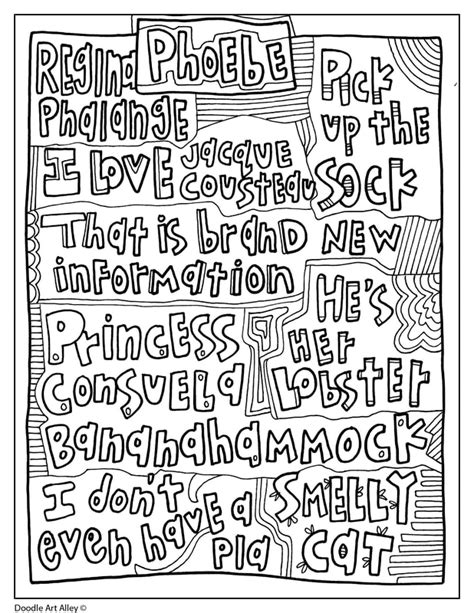 Phoebe
Regina
Phalange
Pick
up the
Sock
I Love Jacque
Cousteau
That is brand new
information
Princess
Consuela
Bananahammock
He's
Her
Lobster
I don't
even have a
pla
Smelly
Cat
Doodle Art Alley ©